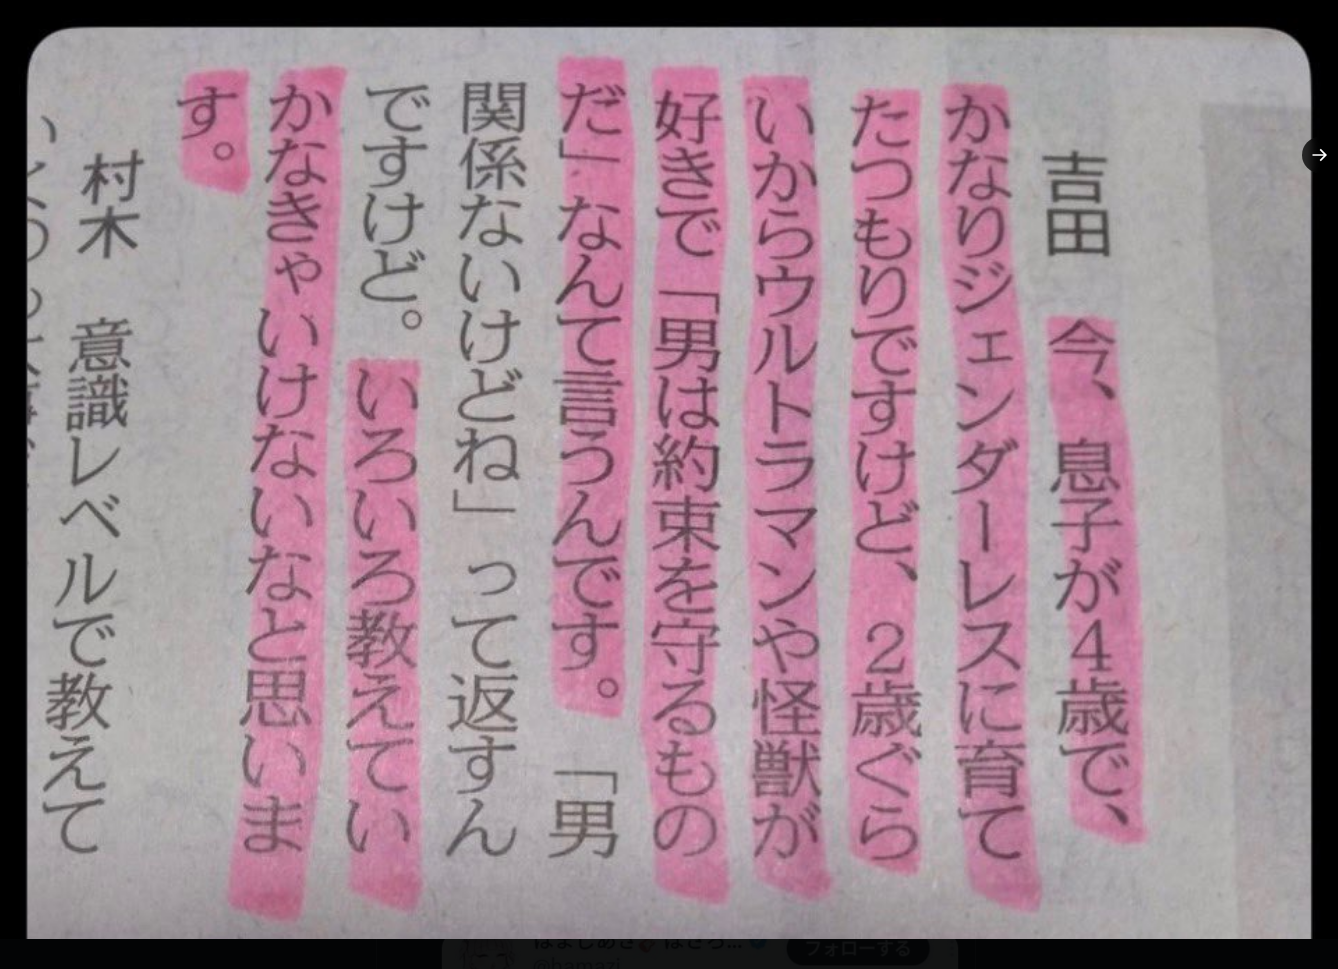 吉田　今、息子が4歳で、
かなりジェンダーレスに育て
たつもりですけど、2歳ぐら
いからウルトラマンや怪獣が
好きで「男は約束を守るもの
だ」なんて言うんです。「男
関係ないけどね」って返すん
ですけど。いろいろ教えてい
かなきゃいけないなと思いま
す。
村木　意識レベルで教えて
フォローする
@hamazi